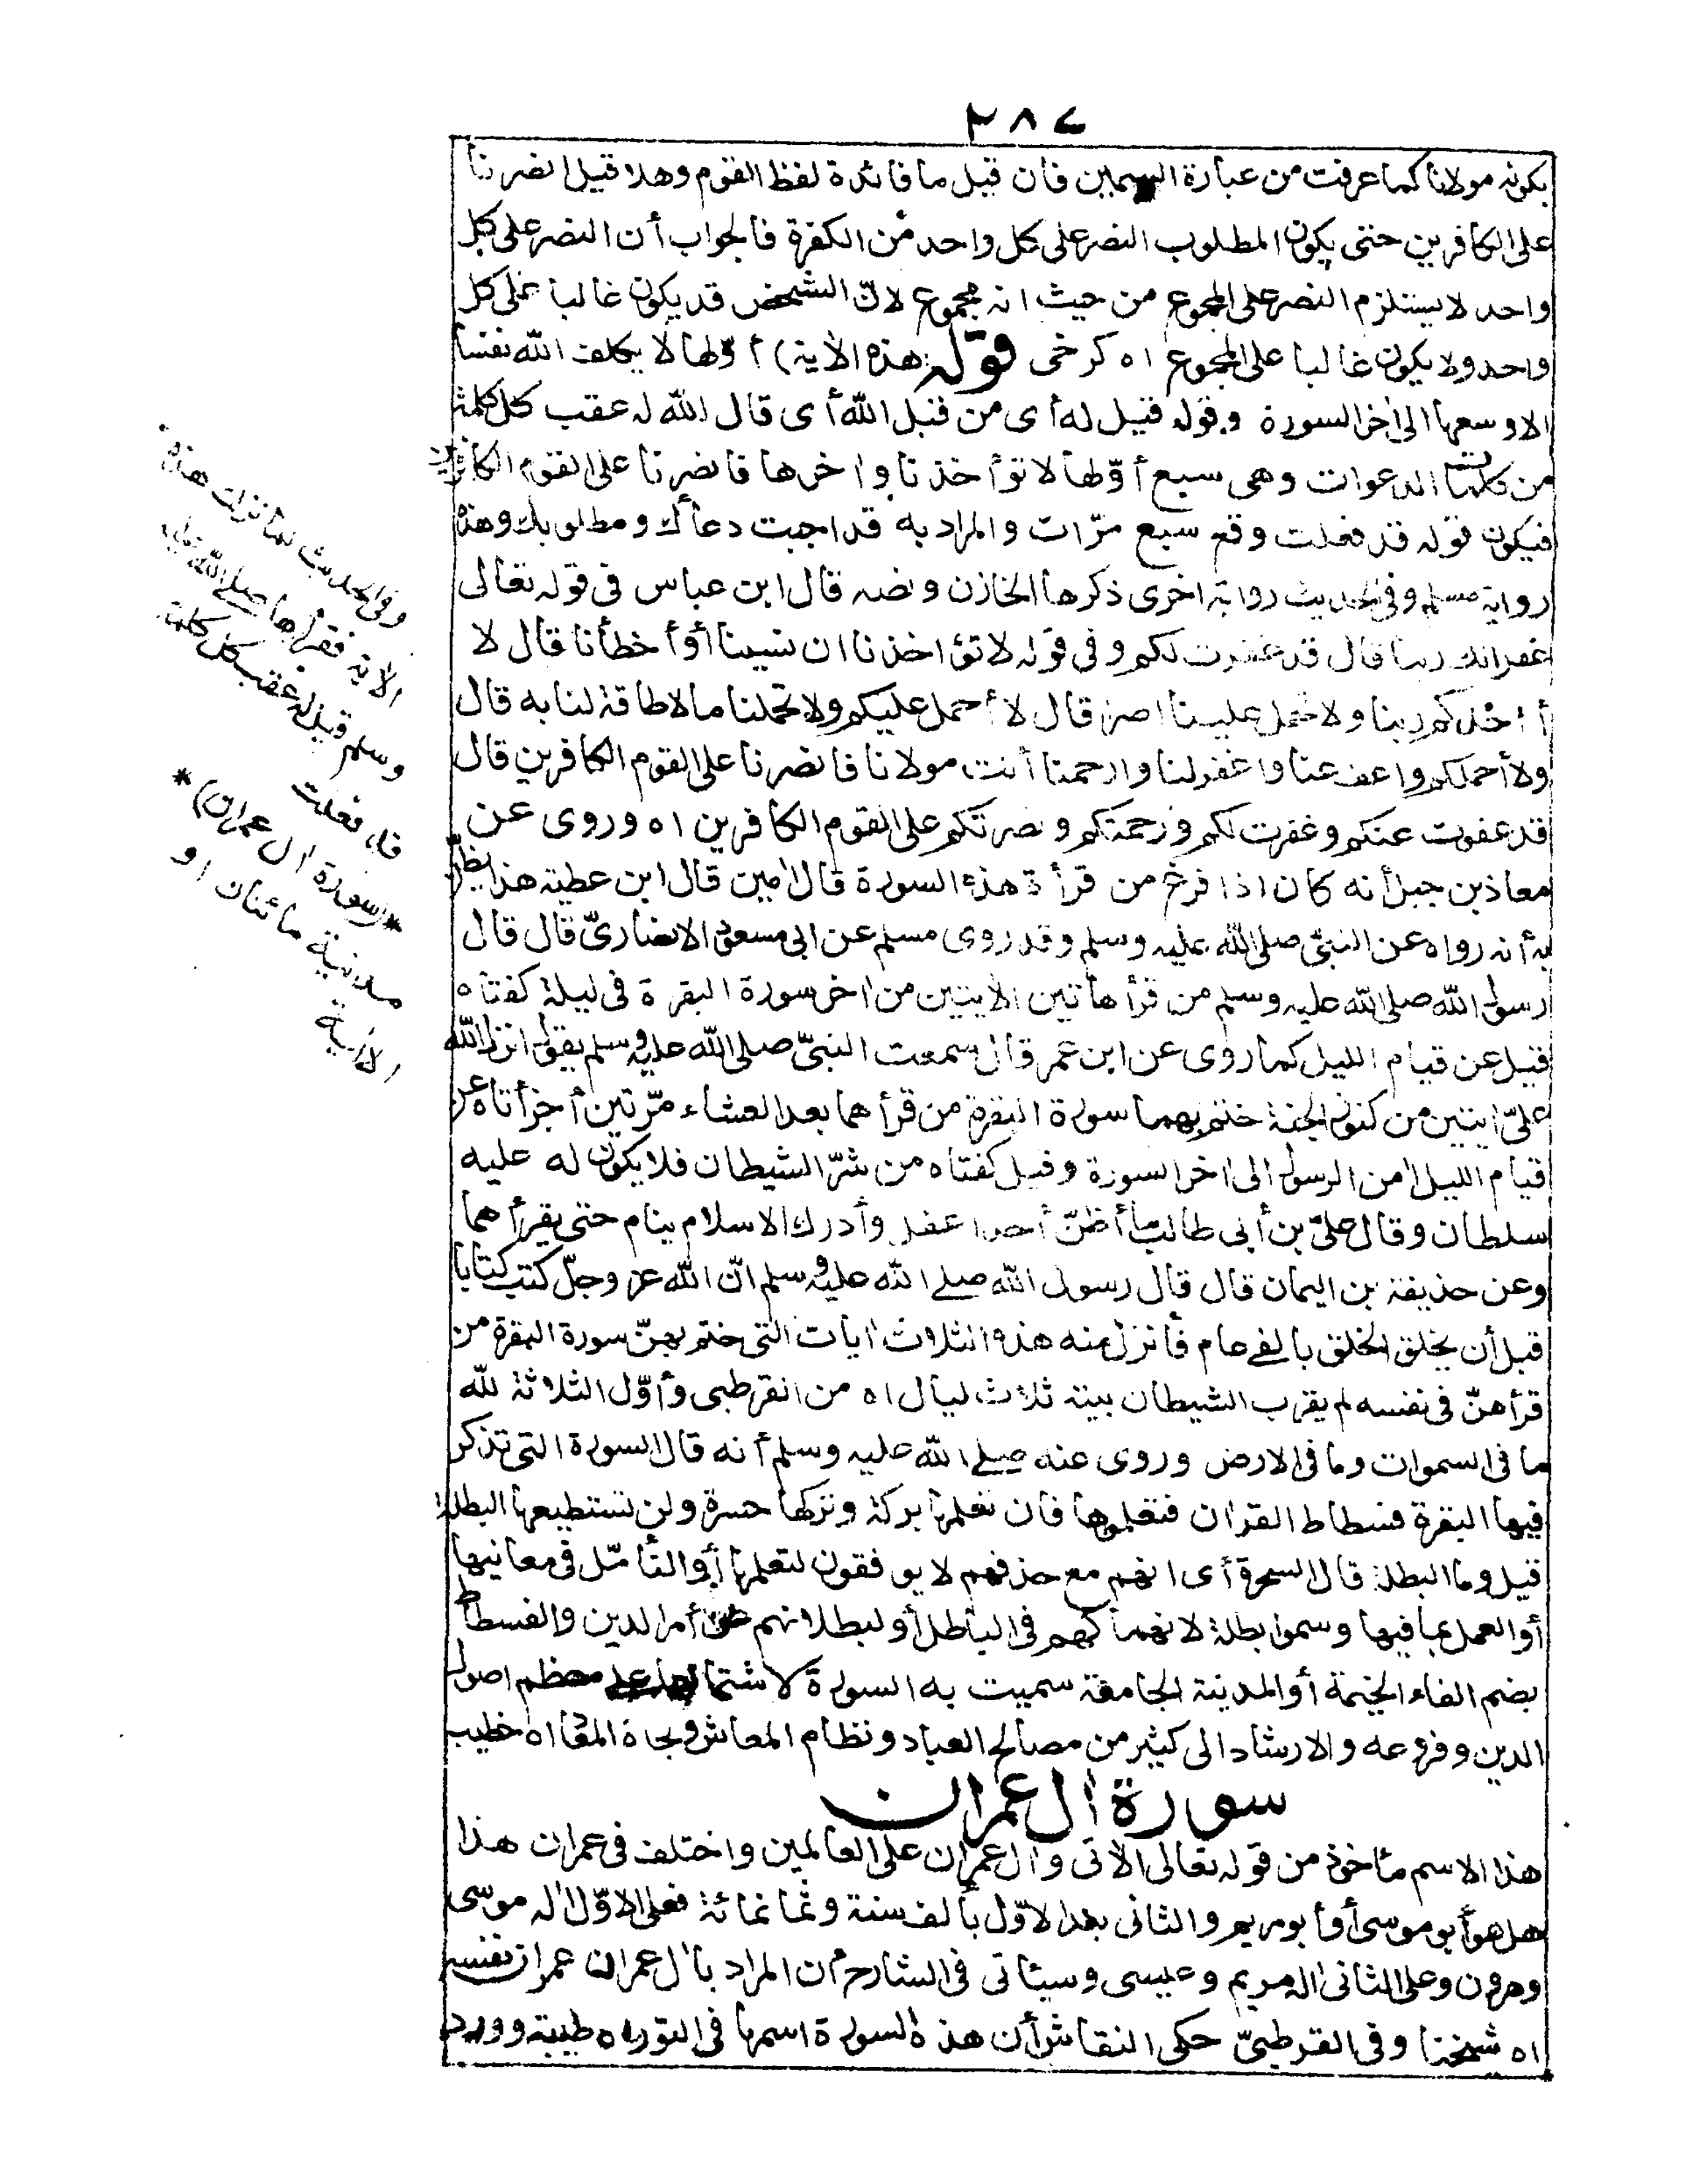 ٢٨٤
بكونه مولانا كما عرفت من عبارة السمين فان قيل ما فائدة لفظ القوم وهلا قيل انصرنا
على الكافرين حتى يكون المطلوب النصر على كل واحد من الكفرة فالجواب أن النصر على كل
واحد لا يستلزم النصر على المجموع من حيث انه مجموع لانّ الشخص قد يكون غالبا على كل
واحد ولا يكون غالبا على المجموع اه كرخى قوله (هذه الاية) أوّلها لا يكلف الله نفسا
الا وسعها الى اخر السورة وقوله قيل له أى من قبل الله أى قال الله له عقب كل كلمة
من كلمات الدعوات وهى سبع أوّلها لا تؤاخذنا واخرها فانصرنا على القوم الكافرين
فيكون قوله قد فعلت وقع سبع مرّات والمراد به قد اجبت دعاءك ومطلوبك وهذه
رواية مسلم وفى الحديث رواية اخرى ذكرها الخازن ونصه قال ابن عباس فى قوله تعالى
غفرانك ربنا قال قد غفرت لكم وفى قوله لا تؤاخذنا ان نسينا أو أخطأنا قال لا
أؤاخذكم ربنا ولا تحمل علينا اصرا قال لا أحمل عليكم ولا تحملنا ما لا طاقة لنا به قال
ولا أحملكم واعف عنا واغفر لنا وارحمنا أنت مولانا فانصرنا على القوم الكافرين قال
قد عفوت عنكم وغفرت لكم ورحمتكم ونصرتكم على القوم الكافرين اه وروى عن
معاذ بن جبل أنه كان اذا فرغ من قرأة هذه السورة قال امين قال ابن عطية هذا يظنّ
به أنه رواه عن النبىّ صلى الله عليه وسلم وقد روى مسلم عن ابى مسعود الانصارىّ قال قال
رسول الله صلى الله عليه وسلم من قرأ هاتين الايتين من اخر سورة البقرة فى ليلة كفتاه
قيل عن قيام الليل كما روى عن ابن عمر قال سمعت النبىّ صلى الله عليه وسلم يقول انزل الله
علىّ ايتين من كنوز الجنة ختم بهما سورة البقرة من قرأهما بعد العشاء مرّتين أجزأتاه عن
قيام الليل امن الرسول الى اخر السورة وقيل كفتاه من شرّ الشيطان فلا يكون له عليه
سلطان وقال علىّ بن أبى طالب ما أظنّ أحدا عقل وأدرك الاسلام ينام حتى يقرأهما
وعن حذيفة بن اليمان قال قال رسول الله صلى الله عليه وسلم انّ الله عز وجلّ كتب كتابا
قبل أن يخلق الخلق بالفى عام فأنزل منه هذه الثلاث ايات التى ختم بهنّ سورة البقرة من
قرأهنّ فى نفسه لم يقرب الشيطان بيته ثلاث ليال اه من القرطبى وأوّل الثلاثة لله
ما فى السموات وما فى الارض وروى عنه صلى الله عليه وسلم أنه قال السورة التى تذكر
فيها البقرة فسطاط القران فتعلموها فان تعلمها بركة وتركها حسرة ولن تستطيعها البطلة
قيل وما البطلة قال السحرة أى انهم مع حذقهم لا يوفقون لتعلمها أو التأمّل فى معانيها
أو العمل بما فيها وسموا بطلة لانهماكهم فى الباطل أو لبطلانهم عن أمر الدين والفسطاط
بضم الفاء الخيمة أو المدينة الجامعة سميت به السورة لاشتمالها على معظم اصول
الدين وفروعه والارشاد الى كثير من مصالح العباد ونظام المعاش ونجاة المعاد اه خطيب
سورة ال عمران
هذا الاسم مأخوذ من قوله تعالى الاتى وال عمران على العالمين واختلف فى عمران هذا
هل هو أبو موسى أو أبو مريم والثانى بعد الاوّل بألف سنة وثمانمائة فعلى الاوّل اله موسى
وهرون وعلى الثانى اله مريم وعيسى وسيأتى فى الشارح أن المراد بال عمران عمران نفسه
اه شيخنا وفى القرطبىّ حكى النقاش أن هذه السورة اسمها فى التوراه طيبة وورد
وفى الحديث لما نزلت هذه
الاية فقرأها صلى الله عليه
وسلم قيل له عقب كل كلمة
قد فعلت
*(سورة ال عمران)*
مدنية مائتان او
الاية